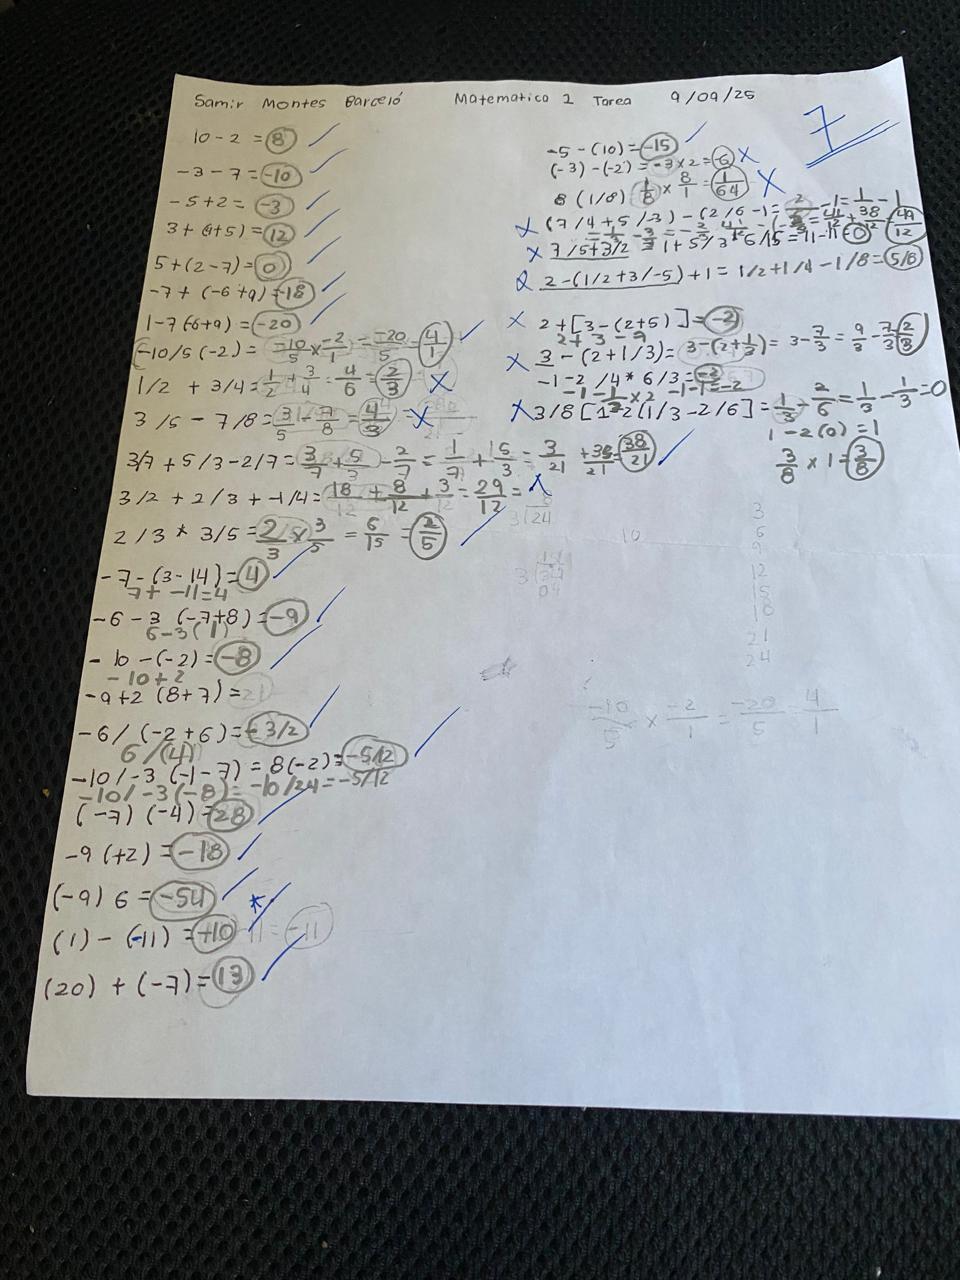 Samir Montes Barceló Matematico 1 Tarea 9/09/25
7
10 - 2 = 8
-3 - 7 = -10
-5+2 = -3
3 + (4+5) = 12
5+(2-7) = 0
-7 + (-6+9) = -18
1-7(-6+9) = -20
-10/5 (-2) = -10/5 × -2/1 = -20/5 = 4/1
1/2 + 3/4 = 1/2 + 3/4 = 4/6 = 2/3
3/5 - 7/8 = 3/5 - 7/8 = 4/3
3/7 + 5/3 - 2/7 = 3/7 + 5/3 - 2/7 = 1/7 + 5/3 = 3/21 + 35/21 = 38/21
3/2 + 2/3 + -1/4 = 18/12 + 8/12 + 3/12 = 29/12 =
2/3 * 3/5 = 2/3 × 3/5 = 6/15 = 2/5
-7 - (3-14) = 4
7 + -11 = 4
-6 - 3 (-7+8) = -9
6-3(1)
-10 - (-2) = -8
-10+2
-9+2 (8+7) = 21
-6/ (-2+6) = -3/2
6/(4)
-10/-3 (-1-7) = 8(-2) = -5/12
-10/-3(-8) = -10/24 = -5/12
(-7) (-4) = 28
-9 (+2) = -18
(-9) 6 = -54
(1) - (-11) = +10
(20) + (-7) = 13
-5 - (10) = -15
(-3) - (-2) = -3×2 = -6
8 (1/8) 1/8 × 8/1 = 1/64
(7/4 + 5/-3) - (2/6 - 1) =
7/5+3/2
2-(1/2+3/-5)+1 = 1/2+1/4-1/8 = 5/8
2+[3-(2+5)] = -2
2+3-9
3 - (2+1/3) = 3-(2+1/3) = 3-7/3 = 9/3 - 7/3 2/3
-1-2/4*6/3 = -2
-1-1/2×2 -1-1=-2
3/8[1-2(1/3-2/6] = 1/3 - 2/6 = 1/3 - 1/3 = 0
1-2(0) = 1
3/8 × 1 = 3/8
3 24
10
3
6
9
12
15
18
21
24
-10/5 × -2/1 = -20/5 = 4/1